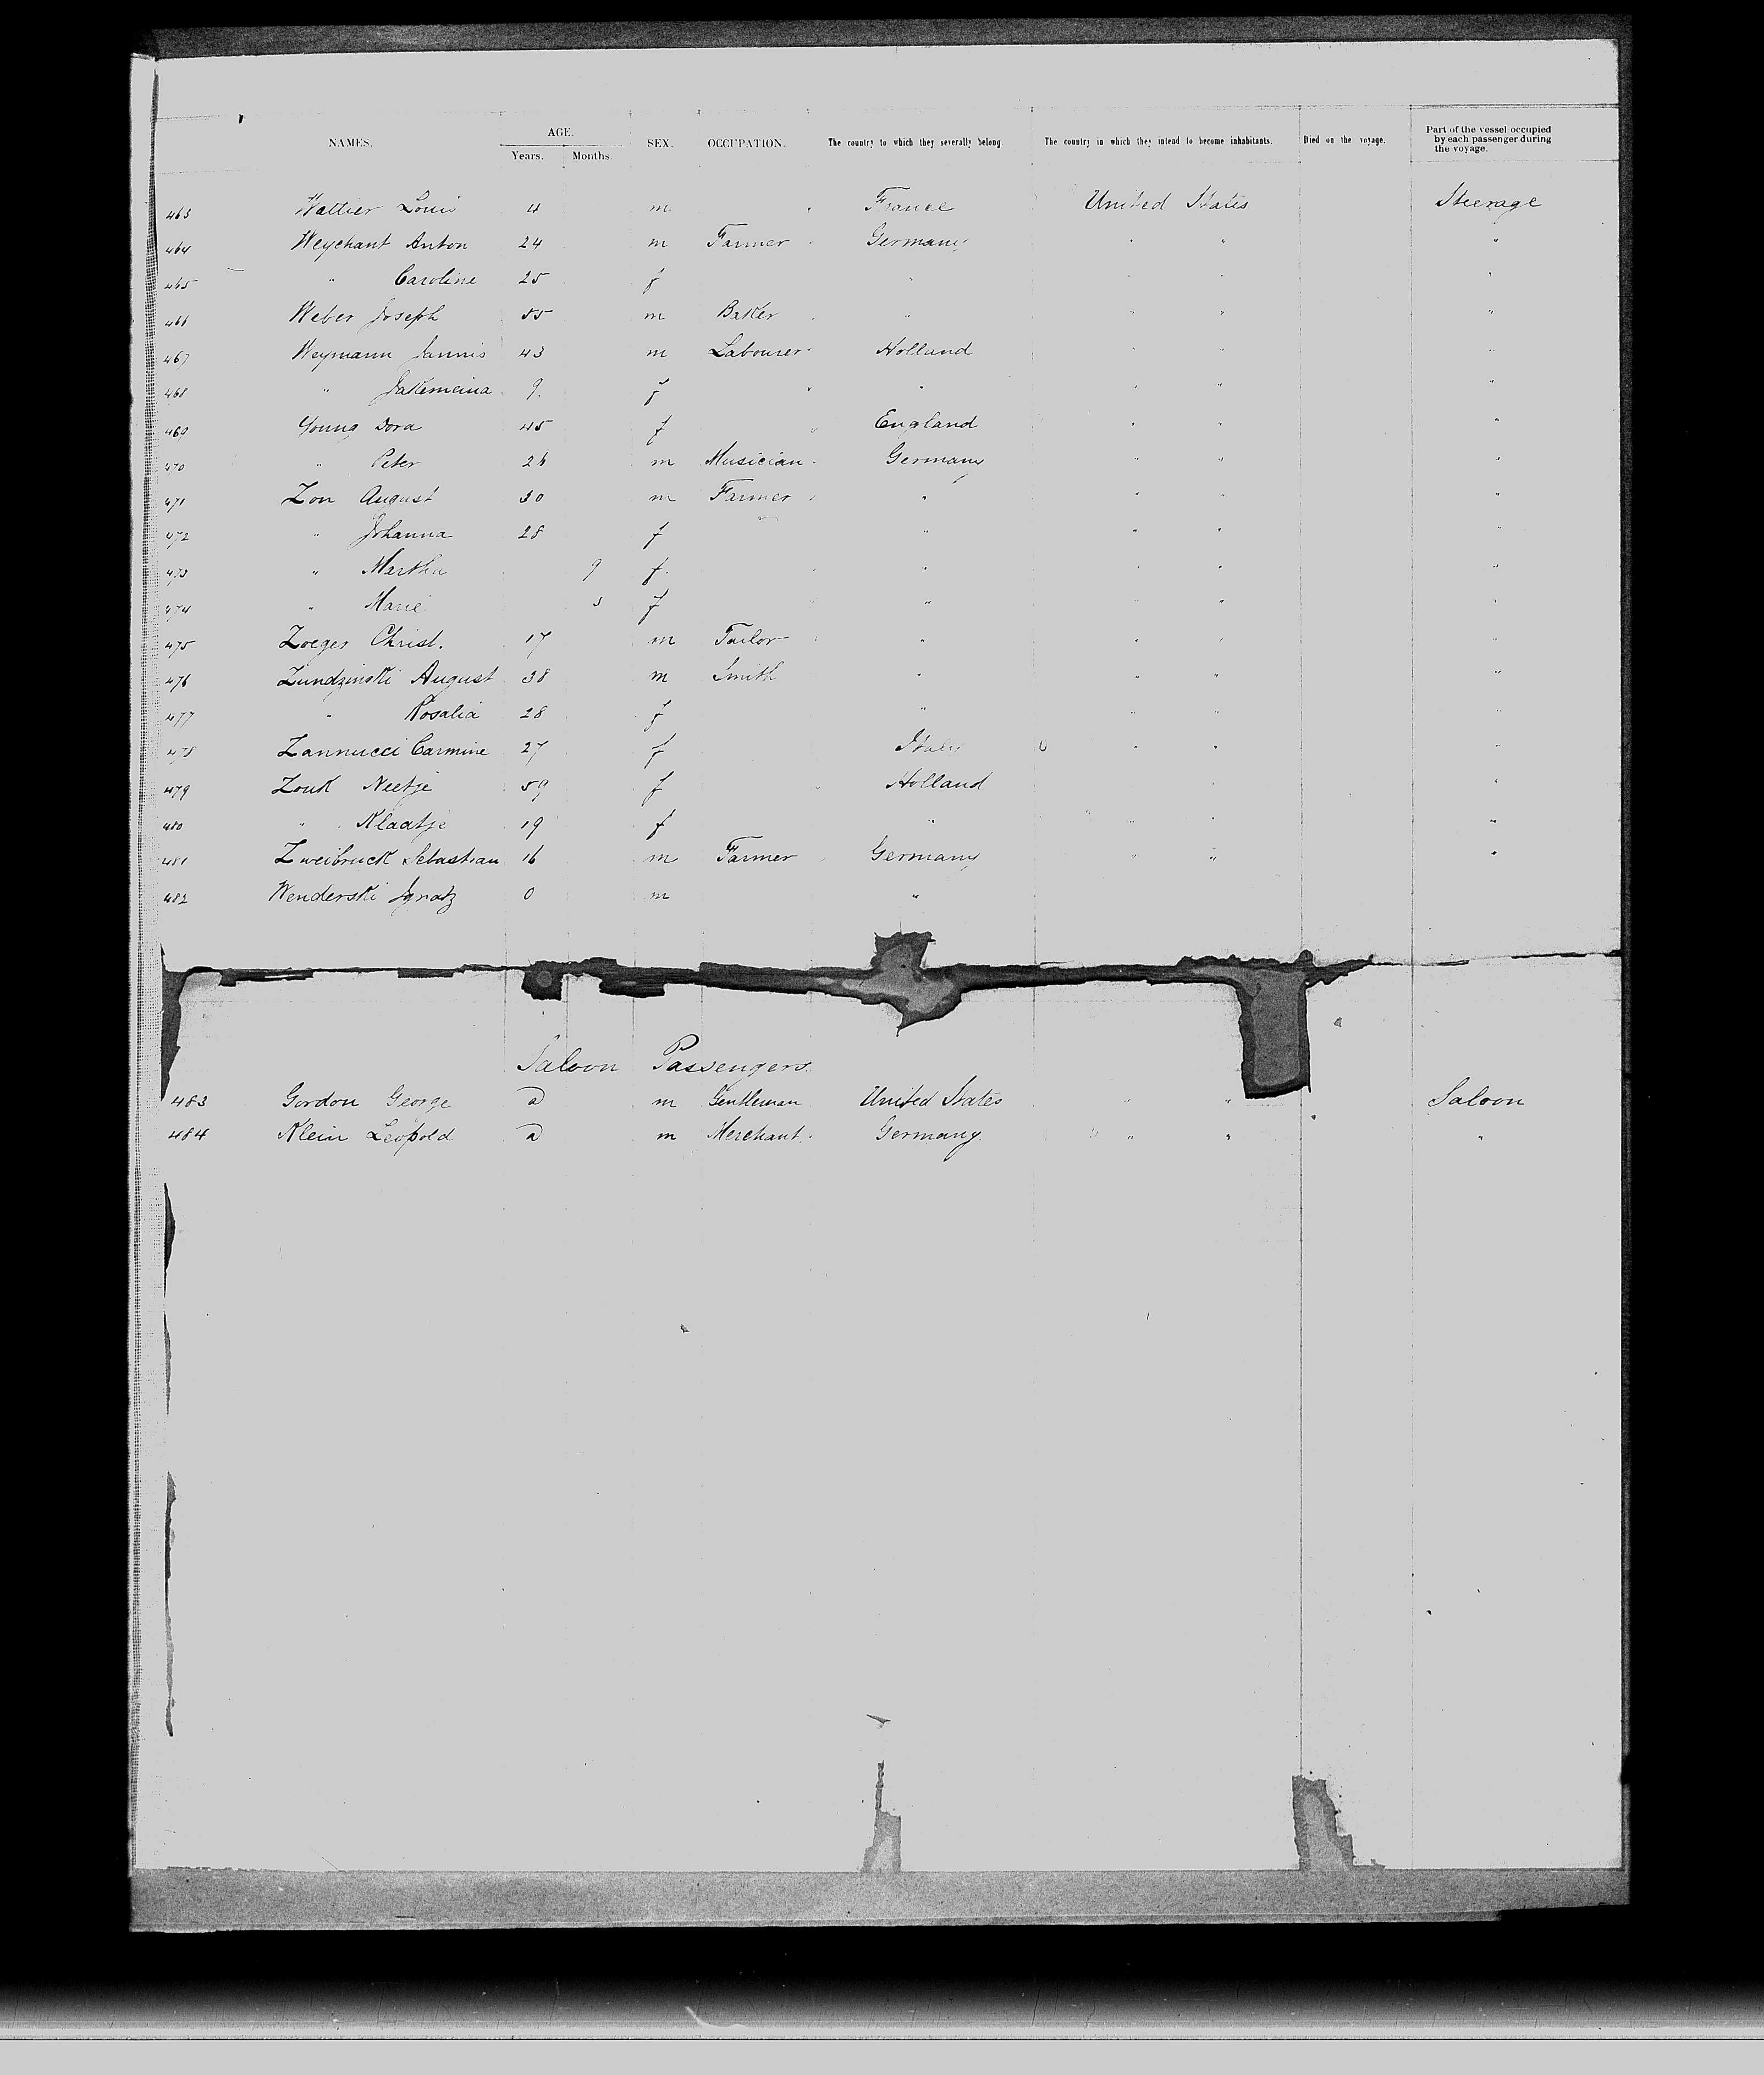 NAMES. AGE. Years. Months. SEX. OCCUPATION. The country to which they severally belong. The country in which they intend to become inhabitants. Died on the voyage. Part of the vessel occupied by each passenger during the voyage.
463 Wattier Louis 4 m France United States Steerage
464 Weychant Anton 24 m Farmer Germany " " "
465 " Caroline 25 f " " " "
466 Weber Joseph 55 m Baker " " " "
467 Weymann Jannis 43 m Labourer Holland " " "
468 " Jakemeina 9 f " " " "
469 Young Dora 45 f England " " "
470 " Peter 26 m Musician Germany " " "
471 Zon August 30 m Farmer " " " "
472 " Johanna 28 f " " " "
473 " Martha 9 f " " " "
474 " Marie 3 f " " " "
475 Zoeger Christ. 17 m Tailor " " " "
476 Zundzinski August 38 m Smith " " " "
477 " Rosalia 28 f " " " "
478 Zannucci Carmine 27 f Italy " " "
479 Zouk Neetje 59 f Holland " "
480 " Klaatje 19 f " " " "
481 Zweibruck Sebastian 16 m Farmer Germany " " "
482 Wenderski Ignatz 0 m "
Saloon Passengers
483 Gordon George a m Gentleman United States " " Saloon
484 Klein Leopold a m Merchant Germany " " "